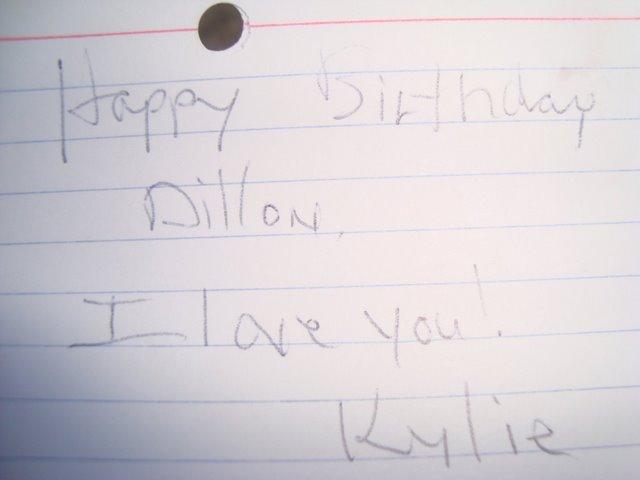 Happy Birthday
Dillon,
I love you!
Kylie